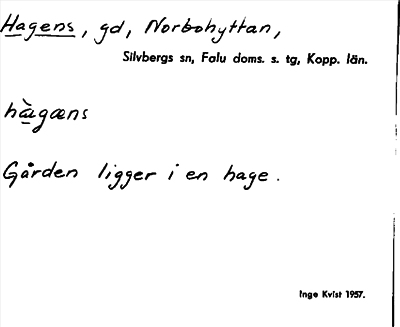 Hagens, gd, Norbohyttan,
Silvbergs sn, Falu doms. s. tg, Kopp. län.
hàgæns
Gården ligger i en hage.
Inge Kvist 1957.